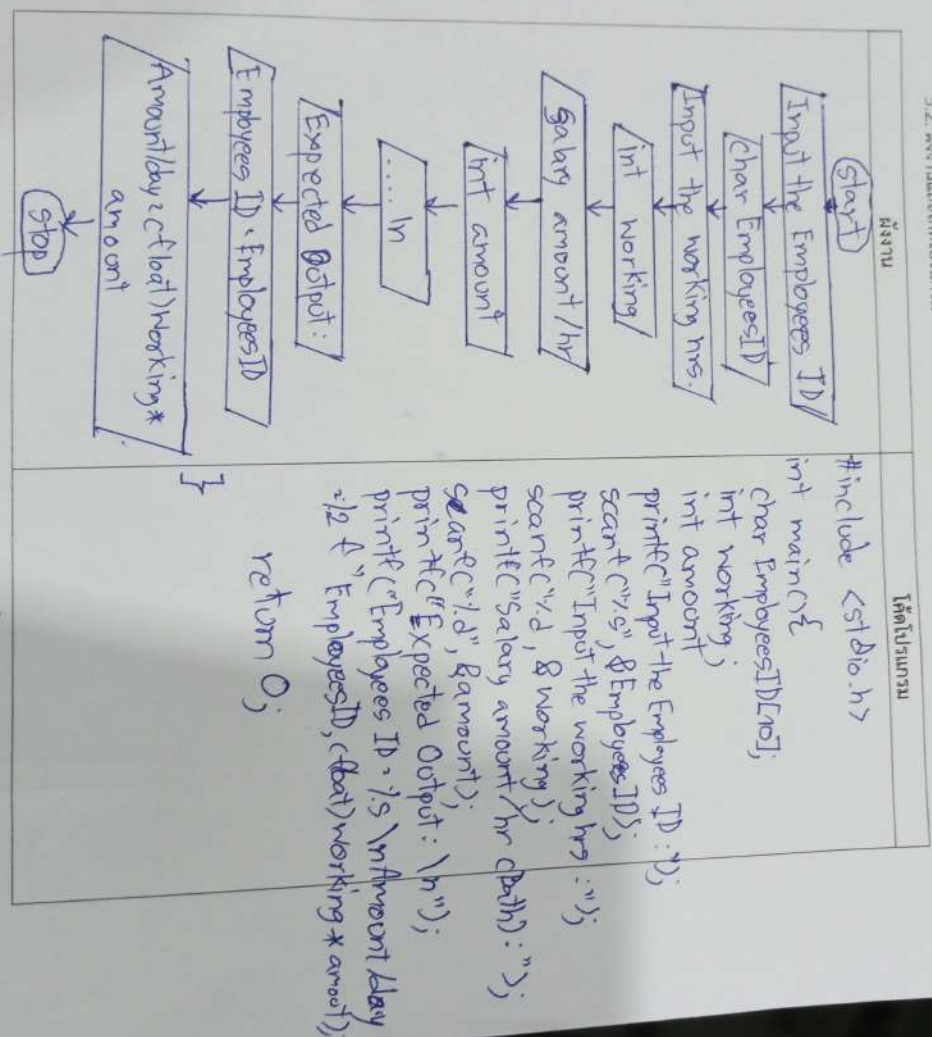 ผังงาน
start
Input the Employees ID
char EmployeesID
Input the working hrs.
int working
Salary amount/hr
int amount
.... \n
Expected Output:
Employees ID = EmployeesID
Amount/day = (float)working*
amount
stop
โค้ดโปรแกรม
#include <stdio.h>
int main(){
char EmployeesID[10];
int working;
int amount
printf("Input the Employees ID :");
scanf("%s", &EmployeesID);
printf("Input the working hrs :");
scanf("%d, & working);
printf("Salary amount/hr (Bath) : ");
scanf("%d", &amount);
printf("Expected Output: \n");
printf("Employees ID = %s \nAmount/day
=%2 f "EmployeesID, (float)working * amout);
return 0;
}